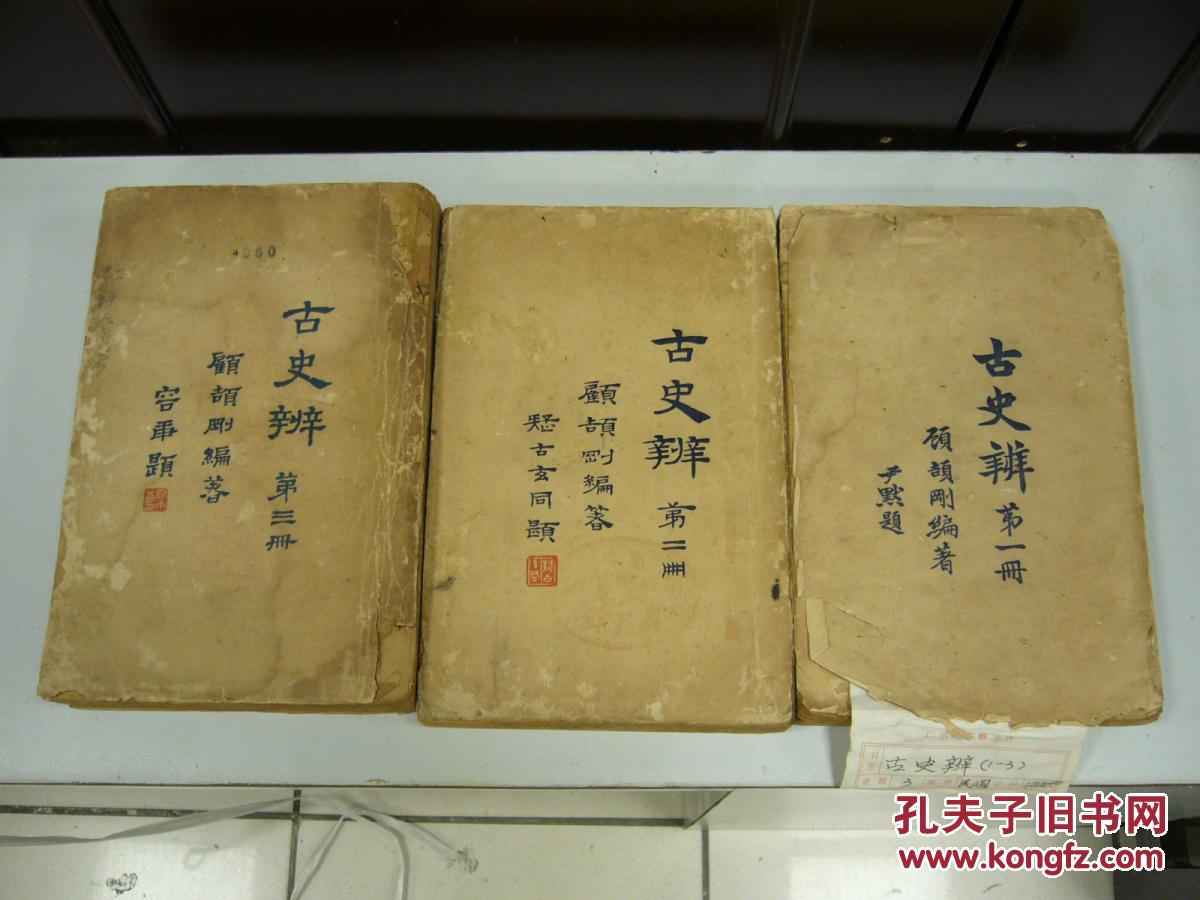 4060
古史辨 第三冊
顧頡剛編著
容庚題
古史辨 第二冊
顧頡剛編著
疑古玄同題
古史辨 第一冊
顧頡剛編著
尹默題
书名 古史辨(1-3)
册数 3
民国
孔夫子旧书网
www.kongfz.com